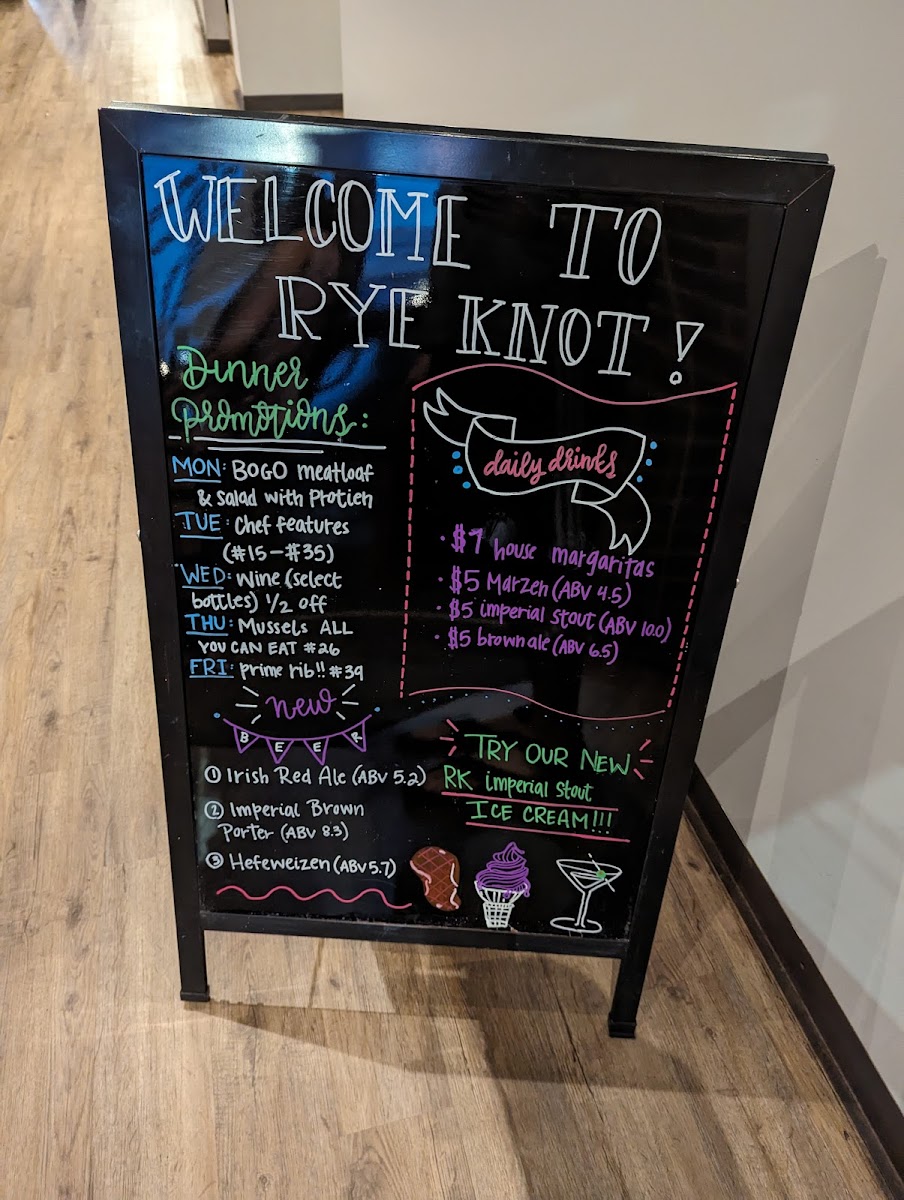 WELCOME TO
RYE KNOT!
Dinner
Promotions:
MON: BOGO meatloaf
& Salad with Protien
TUE: Chef features
(#15-#35)
WED: Wine (select
bottles) 1/2 off
THU: Mussels ALL
YOU CAN EAT #26
FRI: prime rib!! #39
new
BEER
① Irish Red Ale (ABV 5.2)
② Imperial Brown
Porter (ABV 8.3)
③ Hefeweizen (ABV 5.7)
daily drinks
• $7 house margaritas
• $5 Marzen (ABV 4.5)
• $5 imperial stout (ABV 10.0)
• $5 brown ale (ABV 6.5)
TRY OUR NEW
RK imperial stout
ICE CREAM!!!